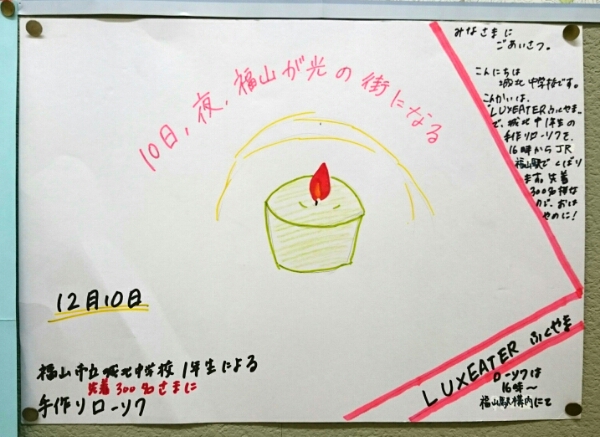 10日,夜,福山が光の街になる
みなさまに
ごあいさつ。
こんにちは
城北中学校です。
こんかいは、
"LUXEATERふくやま"
で、城北中1年生の
手作りローソクを、
16時からJR
福山駅でくばり
ます。先着
300名様な
ので、おは
やめに!
12月10日
福山市立城北中学校1年生による
先着300名さまに
手作りローソク
LUXEATERふくやま
ローソクは
16時〜
福山駅構内にて